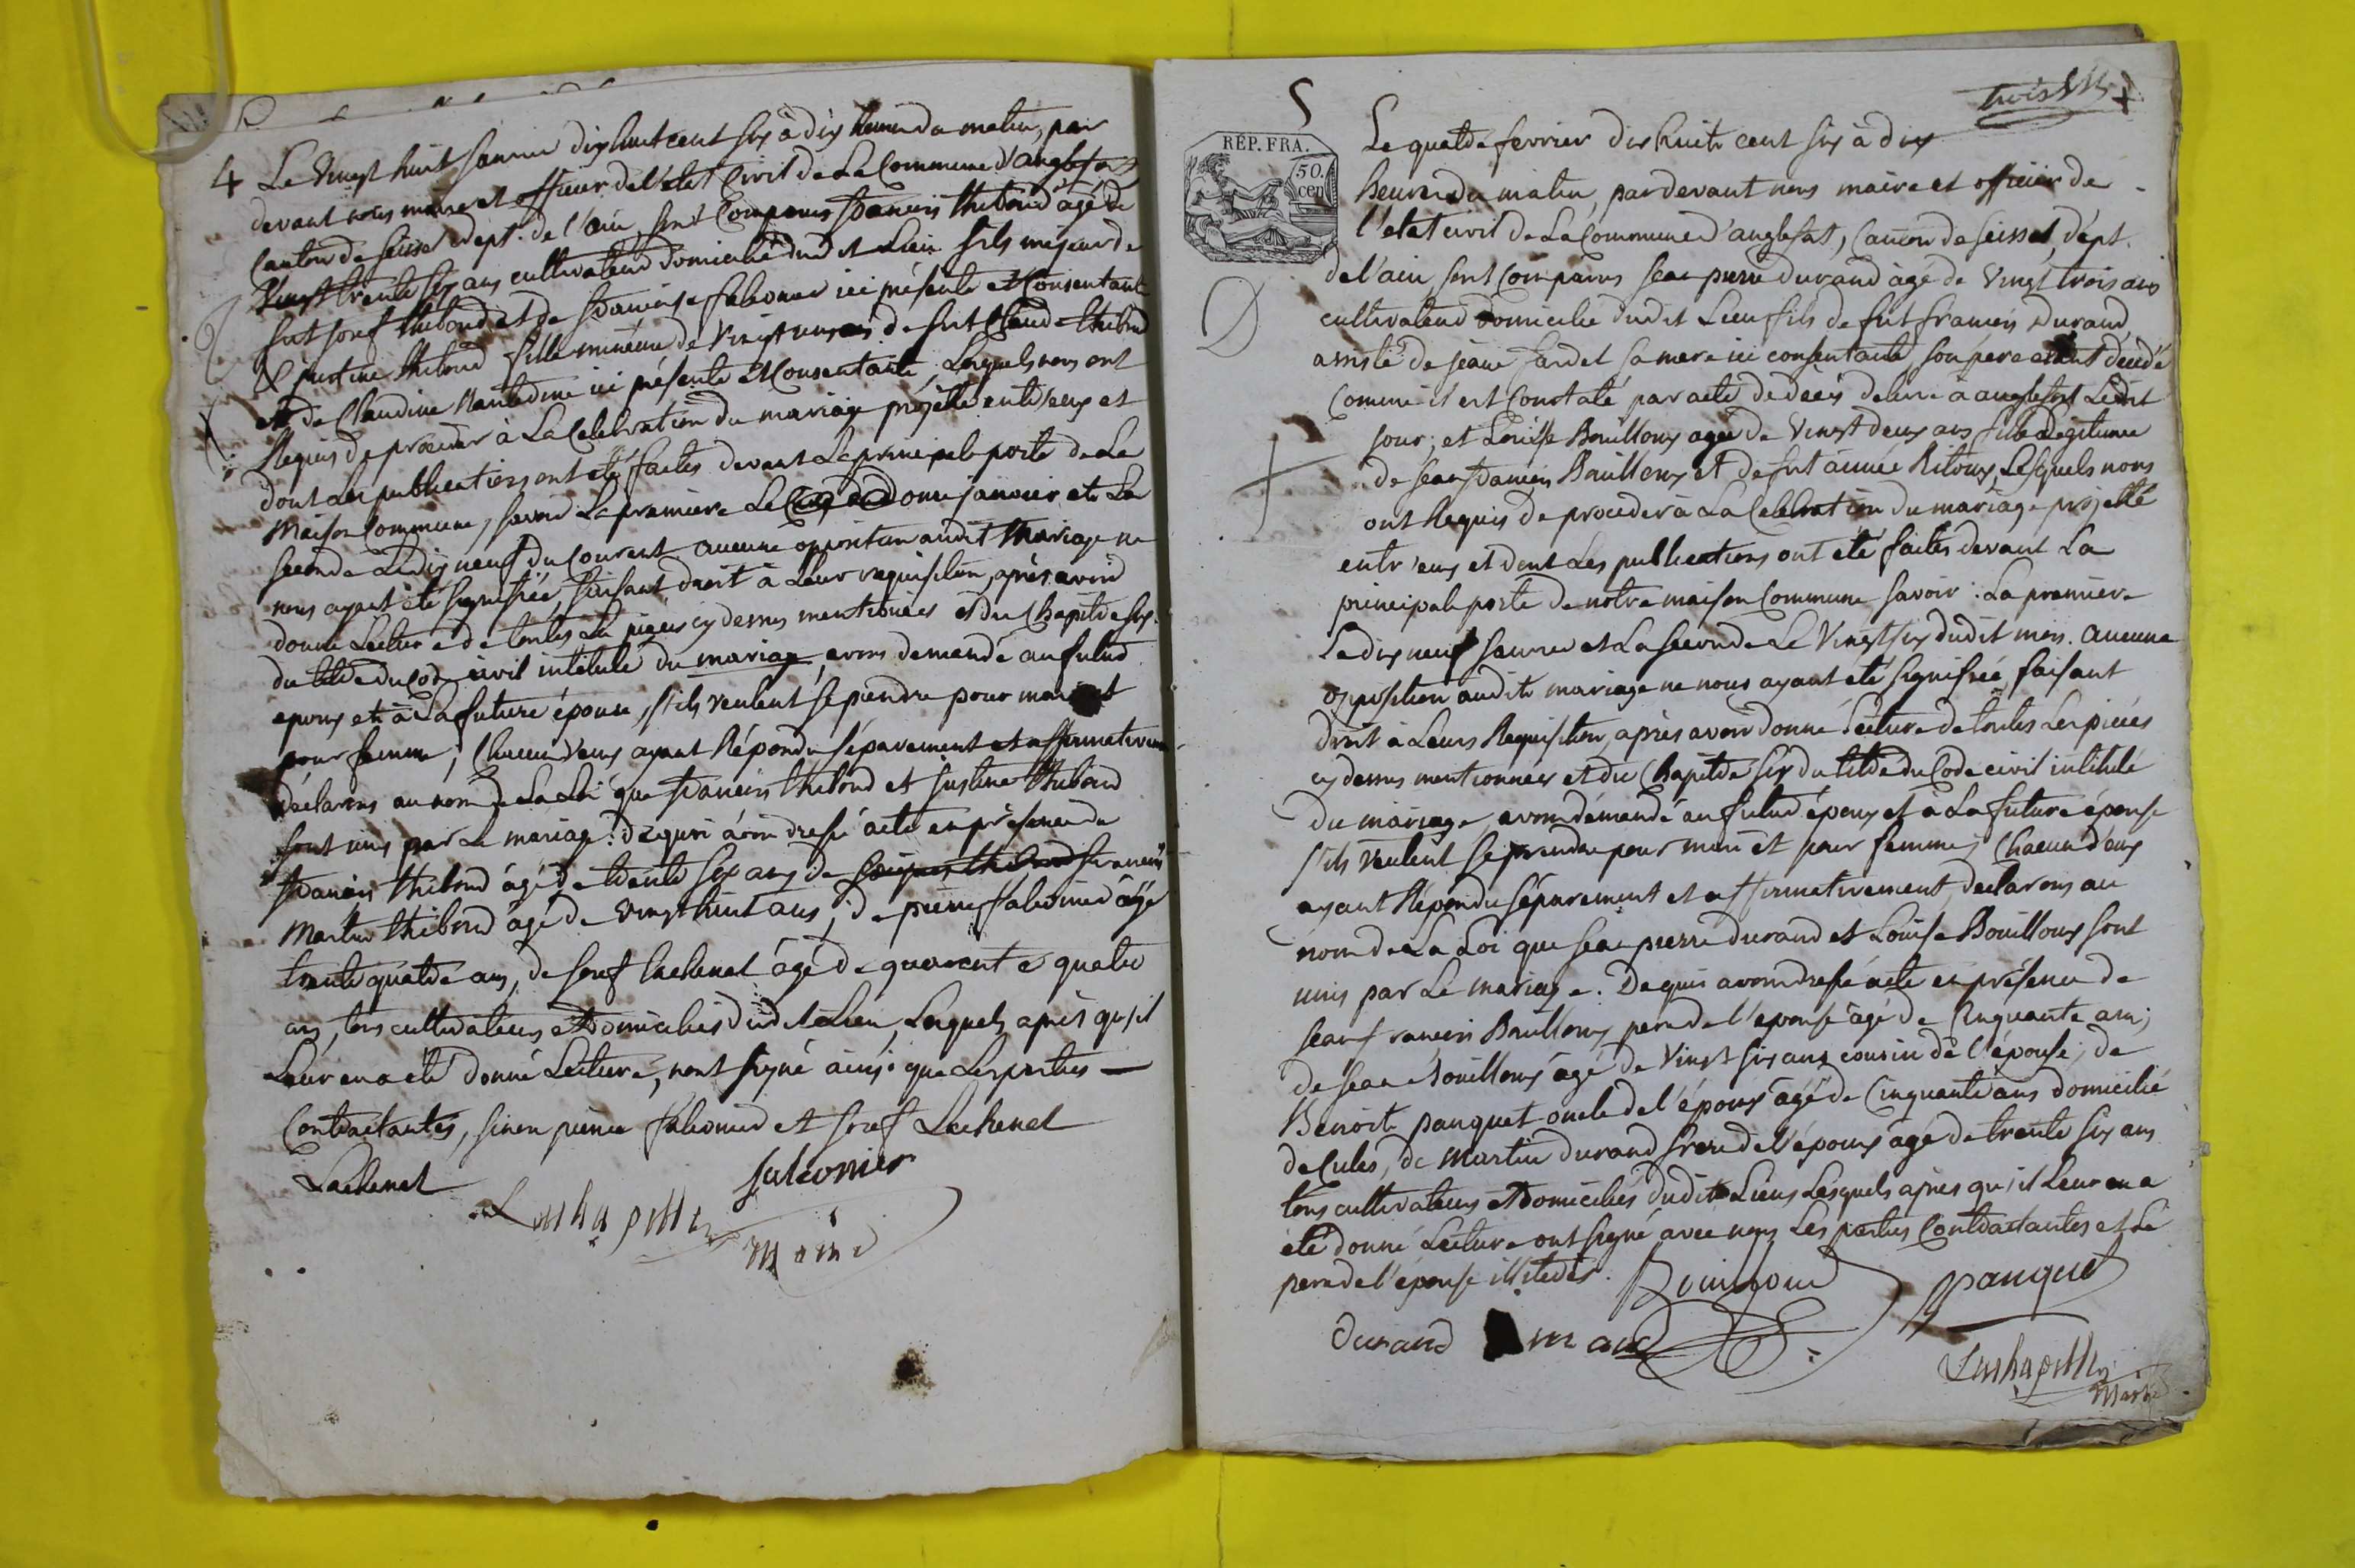 4 Le Vingt huit janvier dix huit cent six à dix heures du matin, par
devant nous maire et officier de l'etat Civil de La Commune d'anglefort
Canton de seissel dept. de l'ain, sont Comparus francois thiboud âgé de
trente six ans cultivateur domicilié dudit Lieu fils majeur de
fut josef thiboud et de francoise falconier ici présente et Consentante
& justine thiboud fille mineure de Vingt un ans de fut Claude thiboud
et de Claudine ici présente et Consentante, Lesquels nous ont
Requis de procéder à La Celebration du mariage projetté entr'eux et
dont Les publications ont été faites devant La principale porte de La
Maison Commune, savoir La premiere Le douze janvier et La
seconde Le dix neuf du Courent aucune opposition audit Mariage ne
nous ayant été signifiée, faisant droit à Leur requisition, après avoir
donné Lecture de toutes Les pieces cy dessus mentionées et du Chapitre six
du titre du Code civil intitulé du mariage, avons demandé au futur
epoux et à La future épouse, s'ils veulent se prendre pour mari et
pour femme, Chacun d'eux ayant Répondu séparement et affirmativem.
déclarons au nom de La Loi que francois thiboud et justine thiboud
sont unis par Le mariage. de quoi avons dressé acte en présence de
francois thiboud âgé de trente six ans de francois
Martin thiboud âgé de vingt huit ans, de pierre falconier âgé
trente quatre ans, de josef Lachenal âgé de quarente quatre
ans, tous cultivateurs et Domiciliés dudit Lieu, Lesquels après qu'il
Leur en a été donné Lecture, n'ont signé ainsi que Les parties —
Contractantes, sinon pierre falconier et josef Lachenal
Lachenal falconier
Maire
trois
5
REP. FRA.
50.
cen
Le quatre fevrier dix huit cent six à dix
heures du matin, pardevant nous maire et officier de
l'etat civil de La Commune d'anglefort, Canton de seissel, dépt.
de l'ain sont Comparus jean pierre durand âgé de Vingt trois ans
cultivateur Domicilié dudit Lieu fils de fut francois Durand,
assisté de jeane jardel sa mere ici consentante, son père etant décédé
Comme il est Constaté par acte de décès délivré à anglefort Ledit
jour; et Louise Bouilloux agée de Vingt deux ans fille Légitime
de jean francois Bouilloux et de fut aimée Ritoux, Lesquels nous
ont Requis de proceder à La Celebration du mariage projetté
entr'eux et dont Les publications ont été faites devant La
principale porte de notre maison Commune savoir: La premiere
Le dix neuf janvier et La seconde Le Vingt six dudit mois. aucune
opposition audit mariage ne nous ayant été signifiée, faisant
droit à Leurs Requisition, après avoir donné Lecture de toutes Les pièces
cy dessus mentionnées et du Chapitre six du titre du Code civil intitulé
du mariage, avons démandé au futur époux et à La future épouse
s'ils veulent se prendre pour mari et pour femme; Chacun d'eux
ayant Répondu séparement et affirmativement, declarons au
nom de La Loi que jean pierre durand et Louise Bouilloux sont
unis par Le mariage. De quoi avons dressé acte en présence de
jean francois Bouilloux pere de l'epouse âgé de Cinquante ans;
de jean Bouilloux âgé de vingt six ans cousin de l'épouse; de
Benoit panquet oncle de l'époux âgé de Cinquante ans domicilié
de Culoz, de Martin Durand frere de l'époux âgé de trente six ans
tous cultivateurs et Domiciliés dudit Lieux Lesquels après qu'il Leur en a
été donné Lecture ont signé avec nous Les parties Contractantes et Le
pere de l'épouse illiterés. panquet
durand
Maire